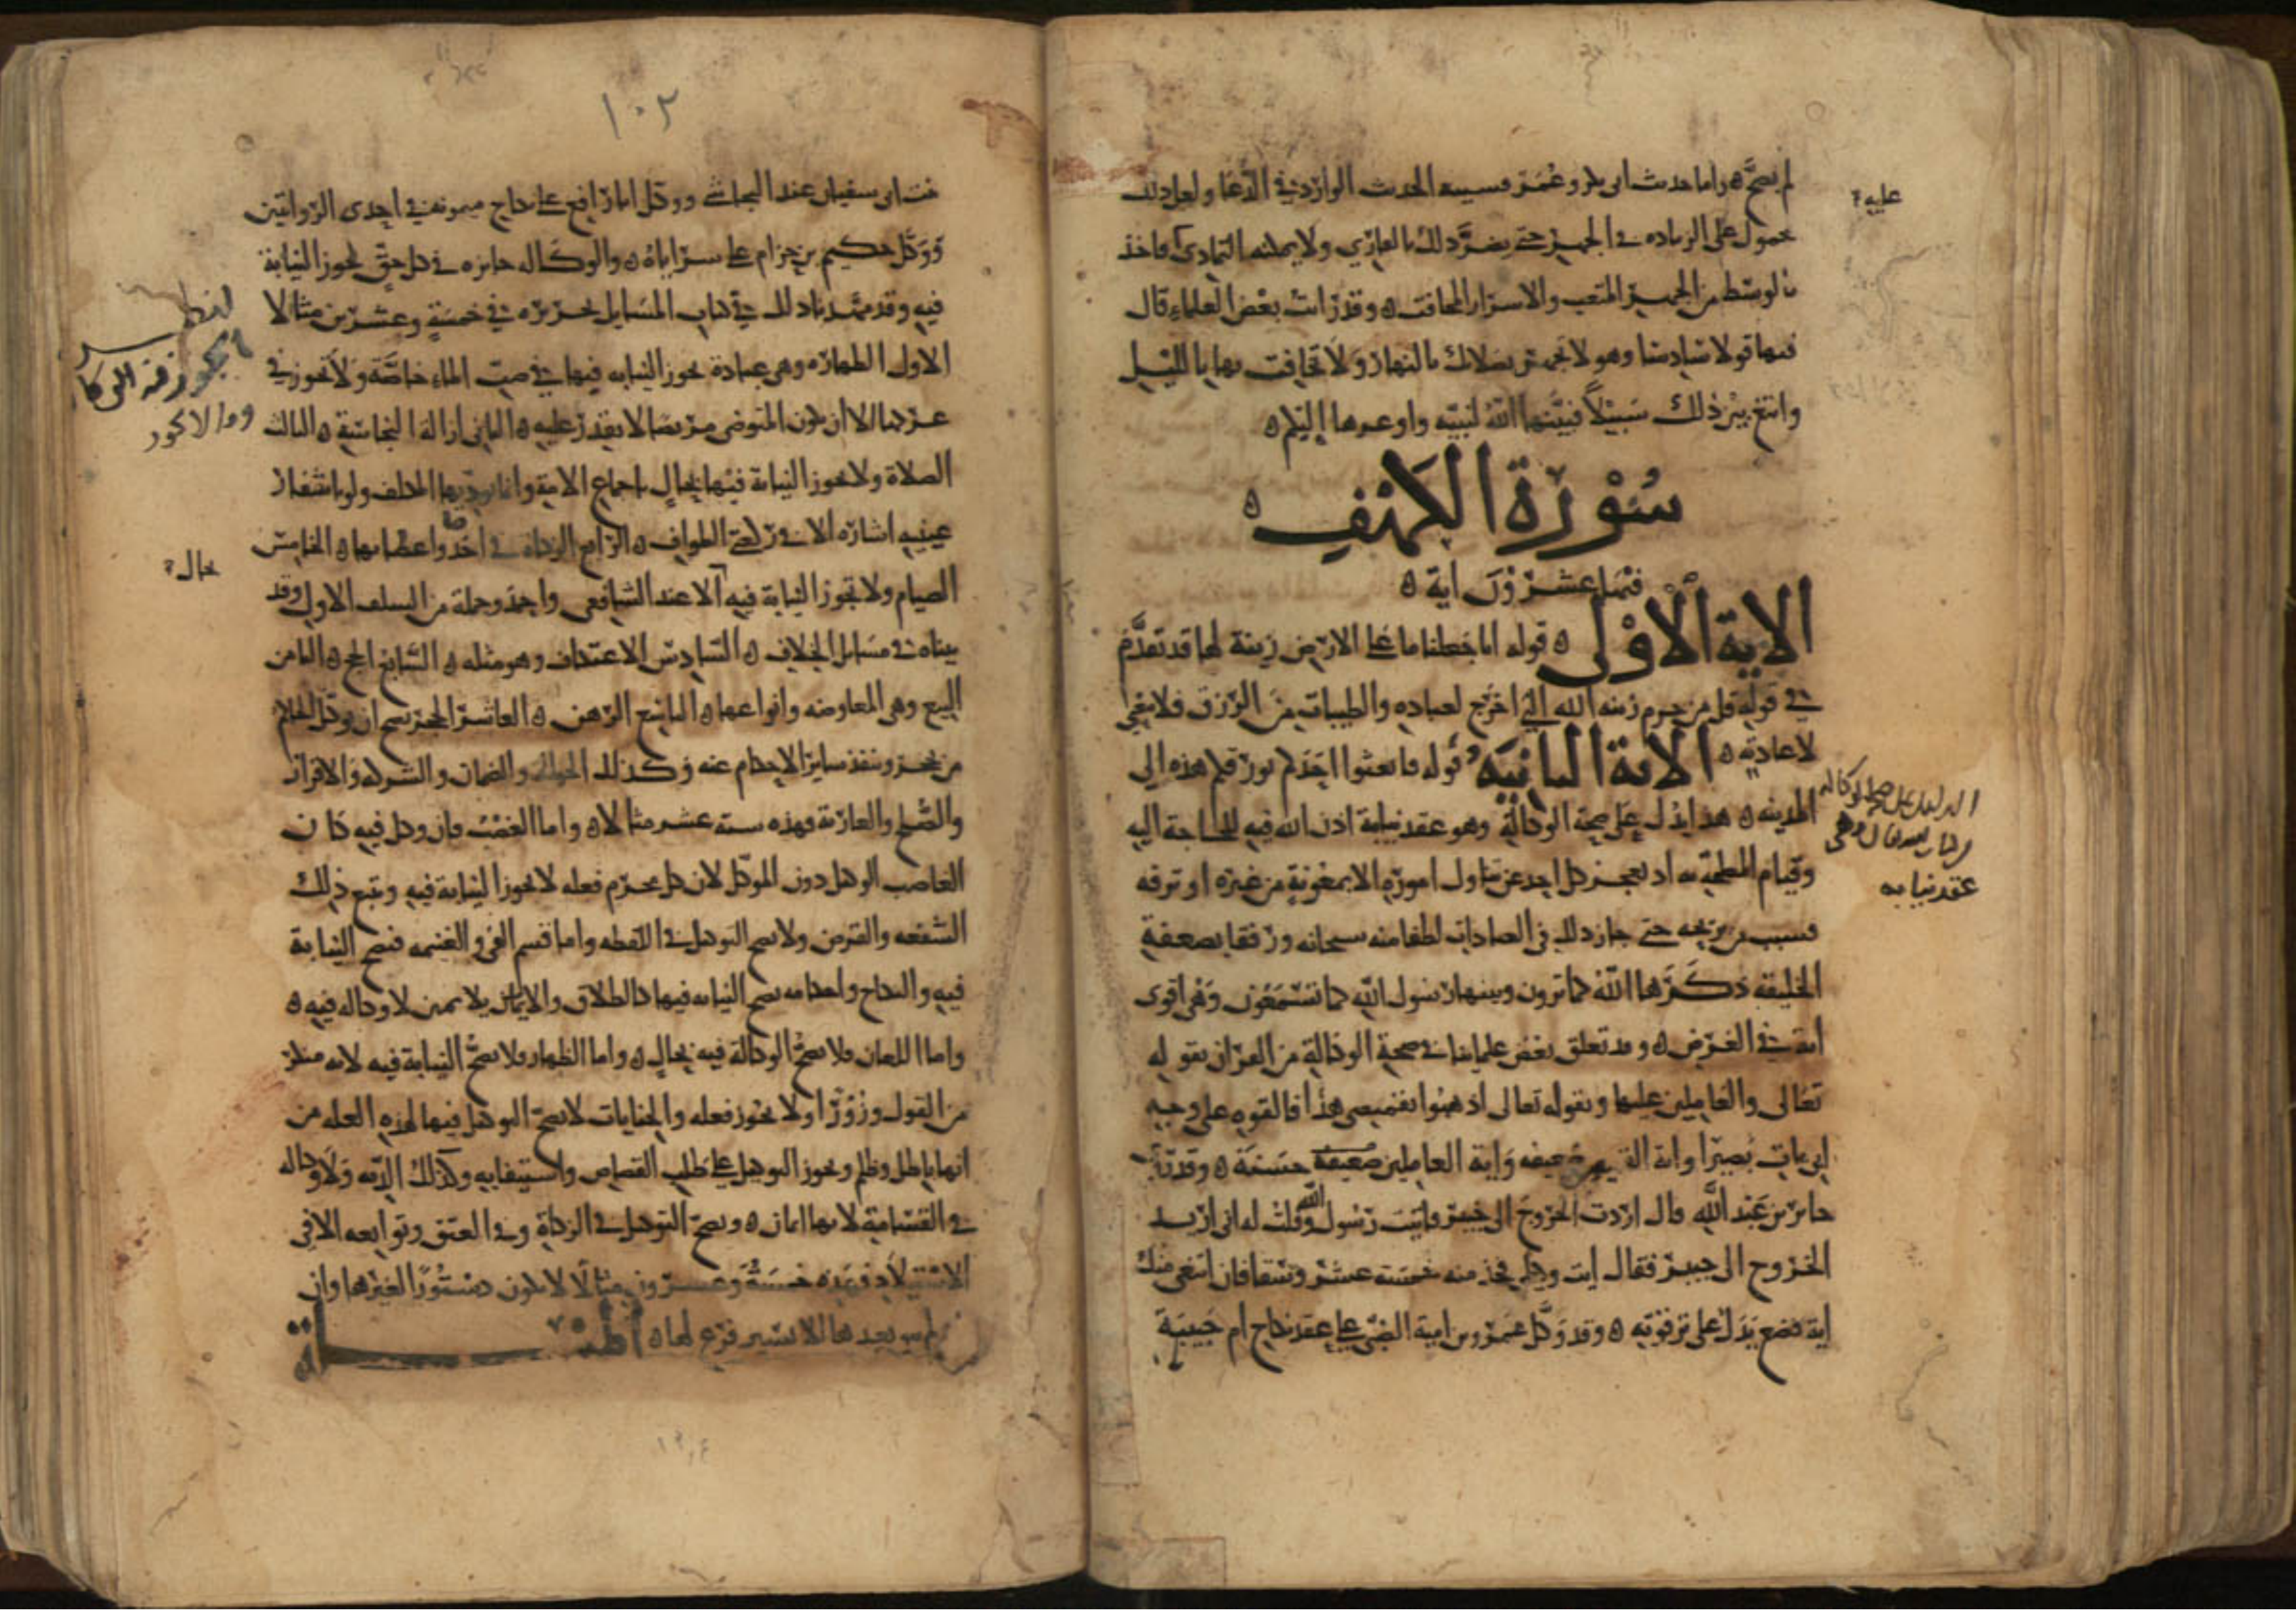 لم يصح ۞ واما حديث ابى بكر وعمر فيشبه الحديث الوارد في الدعا ولعل ذلك
محمول على الزياده في الجهر حتى يضر ذلك بالقاري ولا يمكنه التمادي فاخذ
بالوسط من الجهر المتعب والاسرار المخافت ۞ وقد رايت بعض العلماء قال
فيها قولا سادسا وهو لا تجهر بصلاتك بالنهار ولا تخافت بها بالليل
وابتغ بين ذلك سبيلا فبينها الله لنبيه واوعز بها اليكم ۞
سورة الكهف ۞
فيها عشرون اية ۞
الاية الاولى ۞ قوله انا جعلنا ما على الارض زينة لها قد تقدم
في قوله قل من حرم زينه الله التي اخرج لعباده والطيبات من الرزق فلا معنى
لاعادته ۞ الاية الثانية قوله فابعثوا احدكم بورقكم هذه الى
المدينه ۞ هذا يدل على صحة الوكالة وهو عقد نيابة اذن الله فيه للحاجة اليه
وقيام المصلحة به اذ يعجز كل احد عن تناول اموره الا بمعونة من غيره او ترفه
فيستنيب من يريحه حتى جاز ذلك في العبادات لطفا منه سبحانه ورفقا بضعفة
الخليقه ذكرها الله كما ترون وبينها رسول الله كما تستمعون وهي اقوى
اية في الغرض ۞ وقد تعلق بعض علمائنا في صحة الوكالة من القران بقوله
تعالى والعاملين عليها وبقوله تعالى اذهبوا بقميصي هذا فالقوه على وجه
ابي يات بصيرا واية القميص ضعيفه واية العاملين حسنة ۞ وقد
جابر بن عبد الله قال اردت الخروج الى خيبر فاتيت رسول الله وقلت له اني اريد
الخروج الى خيبر فقال ايت وكيلي فخذ منه خمسة عشر وسقا فان ابتغى منك
اية فضع يدك على ترقوته ۞ وقد وكل عمرو بن امية الضمري على عقد نكاح ام حبيبة
عليه
الدليل على صحة الوكاله
عقد نيابه
١٠٢
بنت ابى سفيان عند النجاشي ووكل ابا رافع على نكاح ميمونه في احدى الروايتين
ووكل حكيم بن حزام على شرا شاة ۞ والوكاله جايزه في كل حق تجوز النيابة
فيه وقد مهدنا ذلك في كتاب المسايل بتحريره في خمسة وعشرين مثالا
الاول الطهاره وهي عبادة تجوز النيابه فيها في صب الماء خاصة ولا تجوز في
عركها الا ان يكون المتوضي مريضا لا يقدر عليه ۞ الثاني ازالة النجاسة ۞ الثالث
الصلاة ولا تجوز النيابة فيها بحال باجماع الامة وانما يوديها المكلف ولو باشفار
عينيه اشارة الا في ركعتي الطواف ۞ الرابع الزكاة في اخذها واعطائها ۞ الخامس
الصيام ولا تجوز النيابة فيه الا عند الشافعي واحمد وجملة من السلف الاول وقد
بيناه في مسايل الخلاف ۞ السادس الاعتكاف وهو مثله ۞ السابع الحج ۞ الثامن
البيع وهي المعاوضه وانواعها ۞ التاسع الرهن ۞ العاشر الحجر يصح ان يوكل الحاكم
من يحجر وينفذ ساير الاحكام عنه وكذلك الحواله والضمان والشركه والاقرار
والصلح والعارية فهذه سته عشر مثالا ۞ واما الغصب فان وكل فيه كان
الغاصب الوكيل دون الموكل لان كل محرم فعله لا تجوز النيابة فيه ويتبع ذلك
الشفعه والقرض ولا يصح التوكيل في اللقطه واما قسم الفي والغنيمه فتصح النيابة
فيه والنكاح واحكامه تصح النيابه فيها كالطلاق والايلاء يمين لا وكاله فيه ۞
واما اللعان فلا تصح الوكالة فيه بحال ۞ واما الظهار فلا تصح النيابة فيه لانه منكر
من القول وزورا ولا يجوز فعله والجنايات لا يصح التوكيل فيها لهذه العله من
انها باطل وظلم ويجوز التوكيل على طلب القصاص واستيفايه وكذلك الديه ولا وكاله
في القسامة لانها ايمان ۞ ويصح التوكيل في الزكاة وفي العتق وتوابعه الا في
الاستيلاد فهذه خمسة وعشرون مثالا لا يكون دستورا لغيرها وان
لم يبق بعدها الا يسير فرع لها ۞
حال